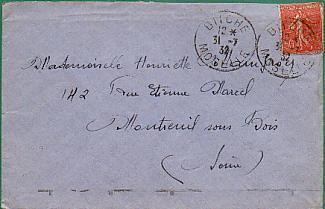 BITCHE
12 *
31 -7
32
MOSELLE
Mademoiselle Henriette
142 Rue Etienne Marcel
Montreuil sous Bois
(Seine)